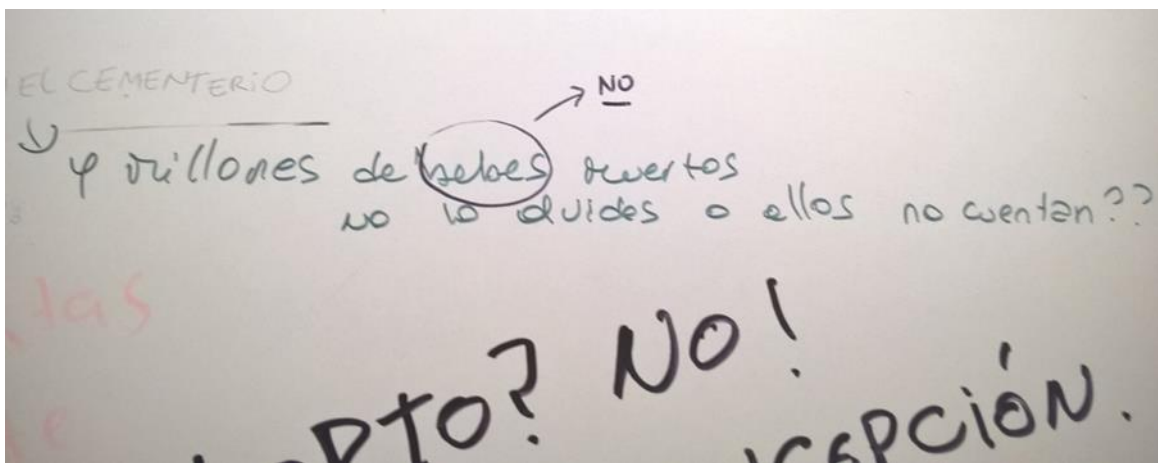 EL CEMENTERIO
NO
y millones de bebes muertos
no lo olvides o ellos no cuentan??
las
NO!